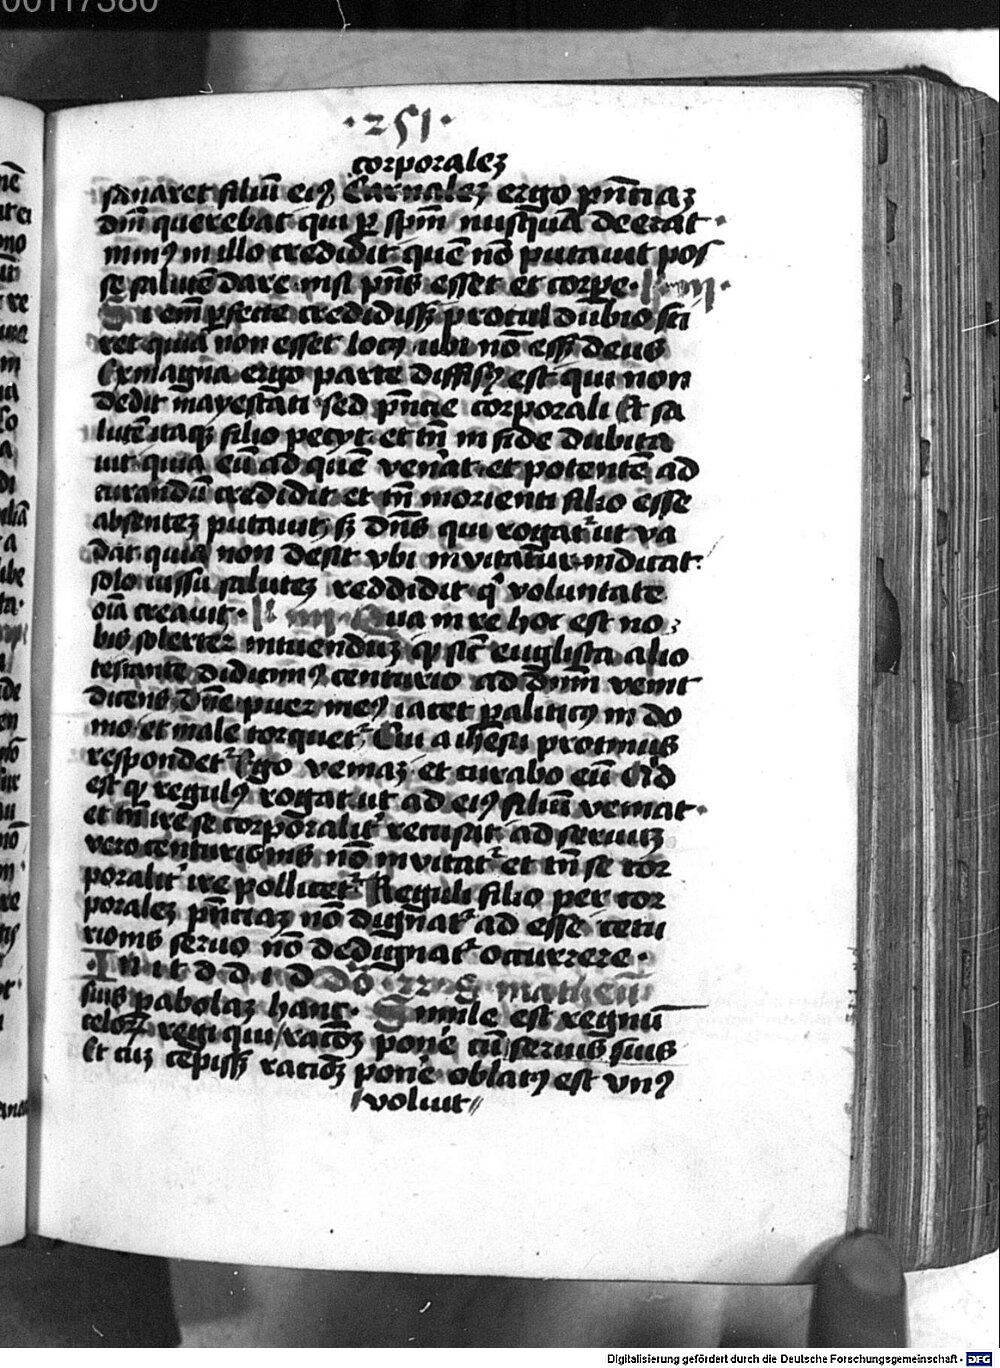 00117380
· 251 ·
corporalez
sanaret filiū eiꝰ Carnalez ergo pn̄tiaz
dm̄ querebat qui ꝑ spm̄ nusquā deerat ·
minꝰ in illo credidit quē nō putauit pos
se salutē dare nisi pn̄s esset et corpe ·
Si em̄ ꝑfecte credidissꝫ procul dubio sci
ret quia non esset locꝰ ubi nō essꝫ deus
Ex magna ergo parte diffisꝰ est qui non
dedit mayestati sed pn̄tie corporali Et sa
lutē itaqꝫ filio petyt et tn̄ in fide dubita
uit quia eū ad quē ven̄at et potentē ad
curandū credidit et tn̄ morienti filio esse
absentez putauit sꝫ dn̄s qui rogat̉ ut va
dat quia non desit vbi inuitat̉ indicat
solo iussu salutez reddidit qͥ voluntate
oīa creauit · Qua in re hoc est no
bis solertez intuenduꝫ qꝫ sic̄ euglista alio
testante didicimꝰ centurio ad dnm̄ venit
dicens Dn̄e puer meꝰ iacet ꝑaliticꝰ in do
mo et male torquet̉ Cui a ihesu protinus
respondet̉ Ego veniaꝫ et curabo eū Qͥd
est qꝫ regulꝰ rogat ut ad eiꝰ filiū veniat ·
et tn̄ ire se corporalit̉ recusat ad seruuꝫ
vero centurionis nō inuitat̉ et tn̄ se cor
poralit̉ ire pollicet̉ Reguli filio per cor
poralez pn̄tiaꝫ nō dignat̉ ad esse cētu
rionis seruo nō dedignat̉ occurrere ·
In i t d d i d Dō · 22 · S matheū
suis pabolaꝫ hanc · Simile est regnū
celoꝝ regi qui racōꝫ pone͛ cū seruis suis
Et cuꝫ cepissꝫ rationꝫ pone͛ oblatꝰ est vnꝰ
voluit
Digitalisierung gefördert durch die Deutsche Forschungsgemeinschaft - DFG